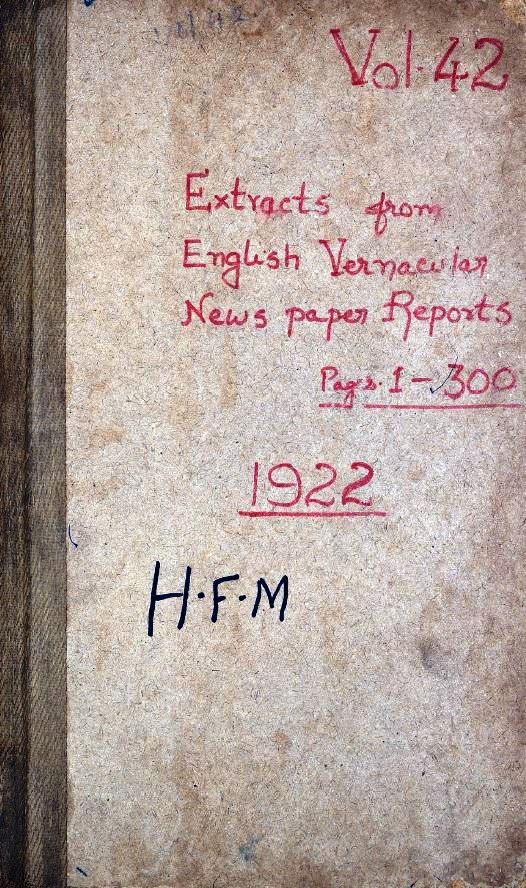 Vol. 42
Vol. 42
Extracts from
English Vernacular
News paper Reports
Pages. 1 - 300
1922
H.F.M